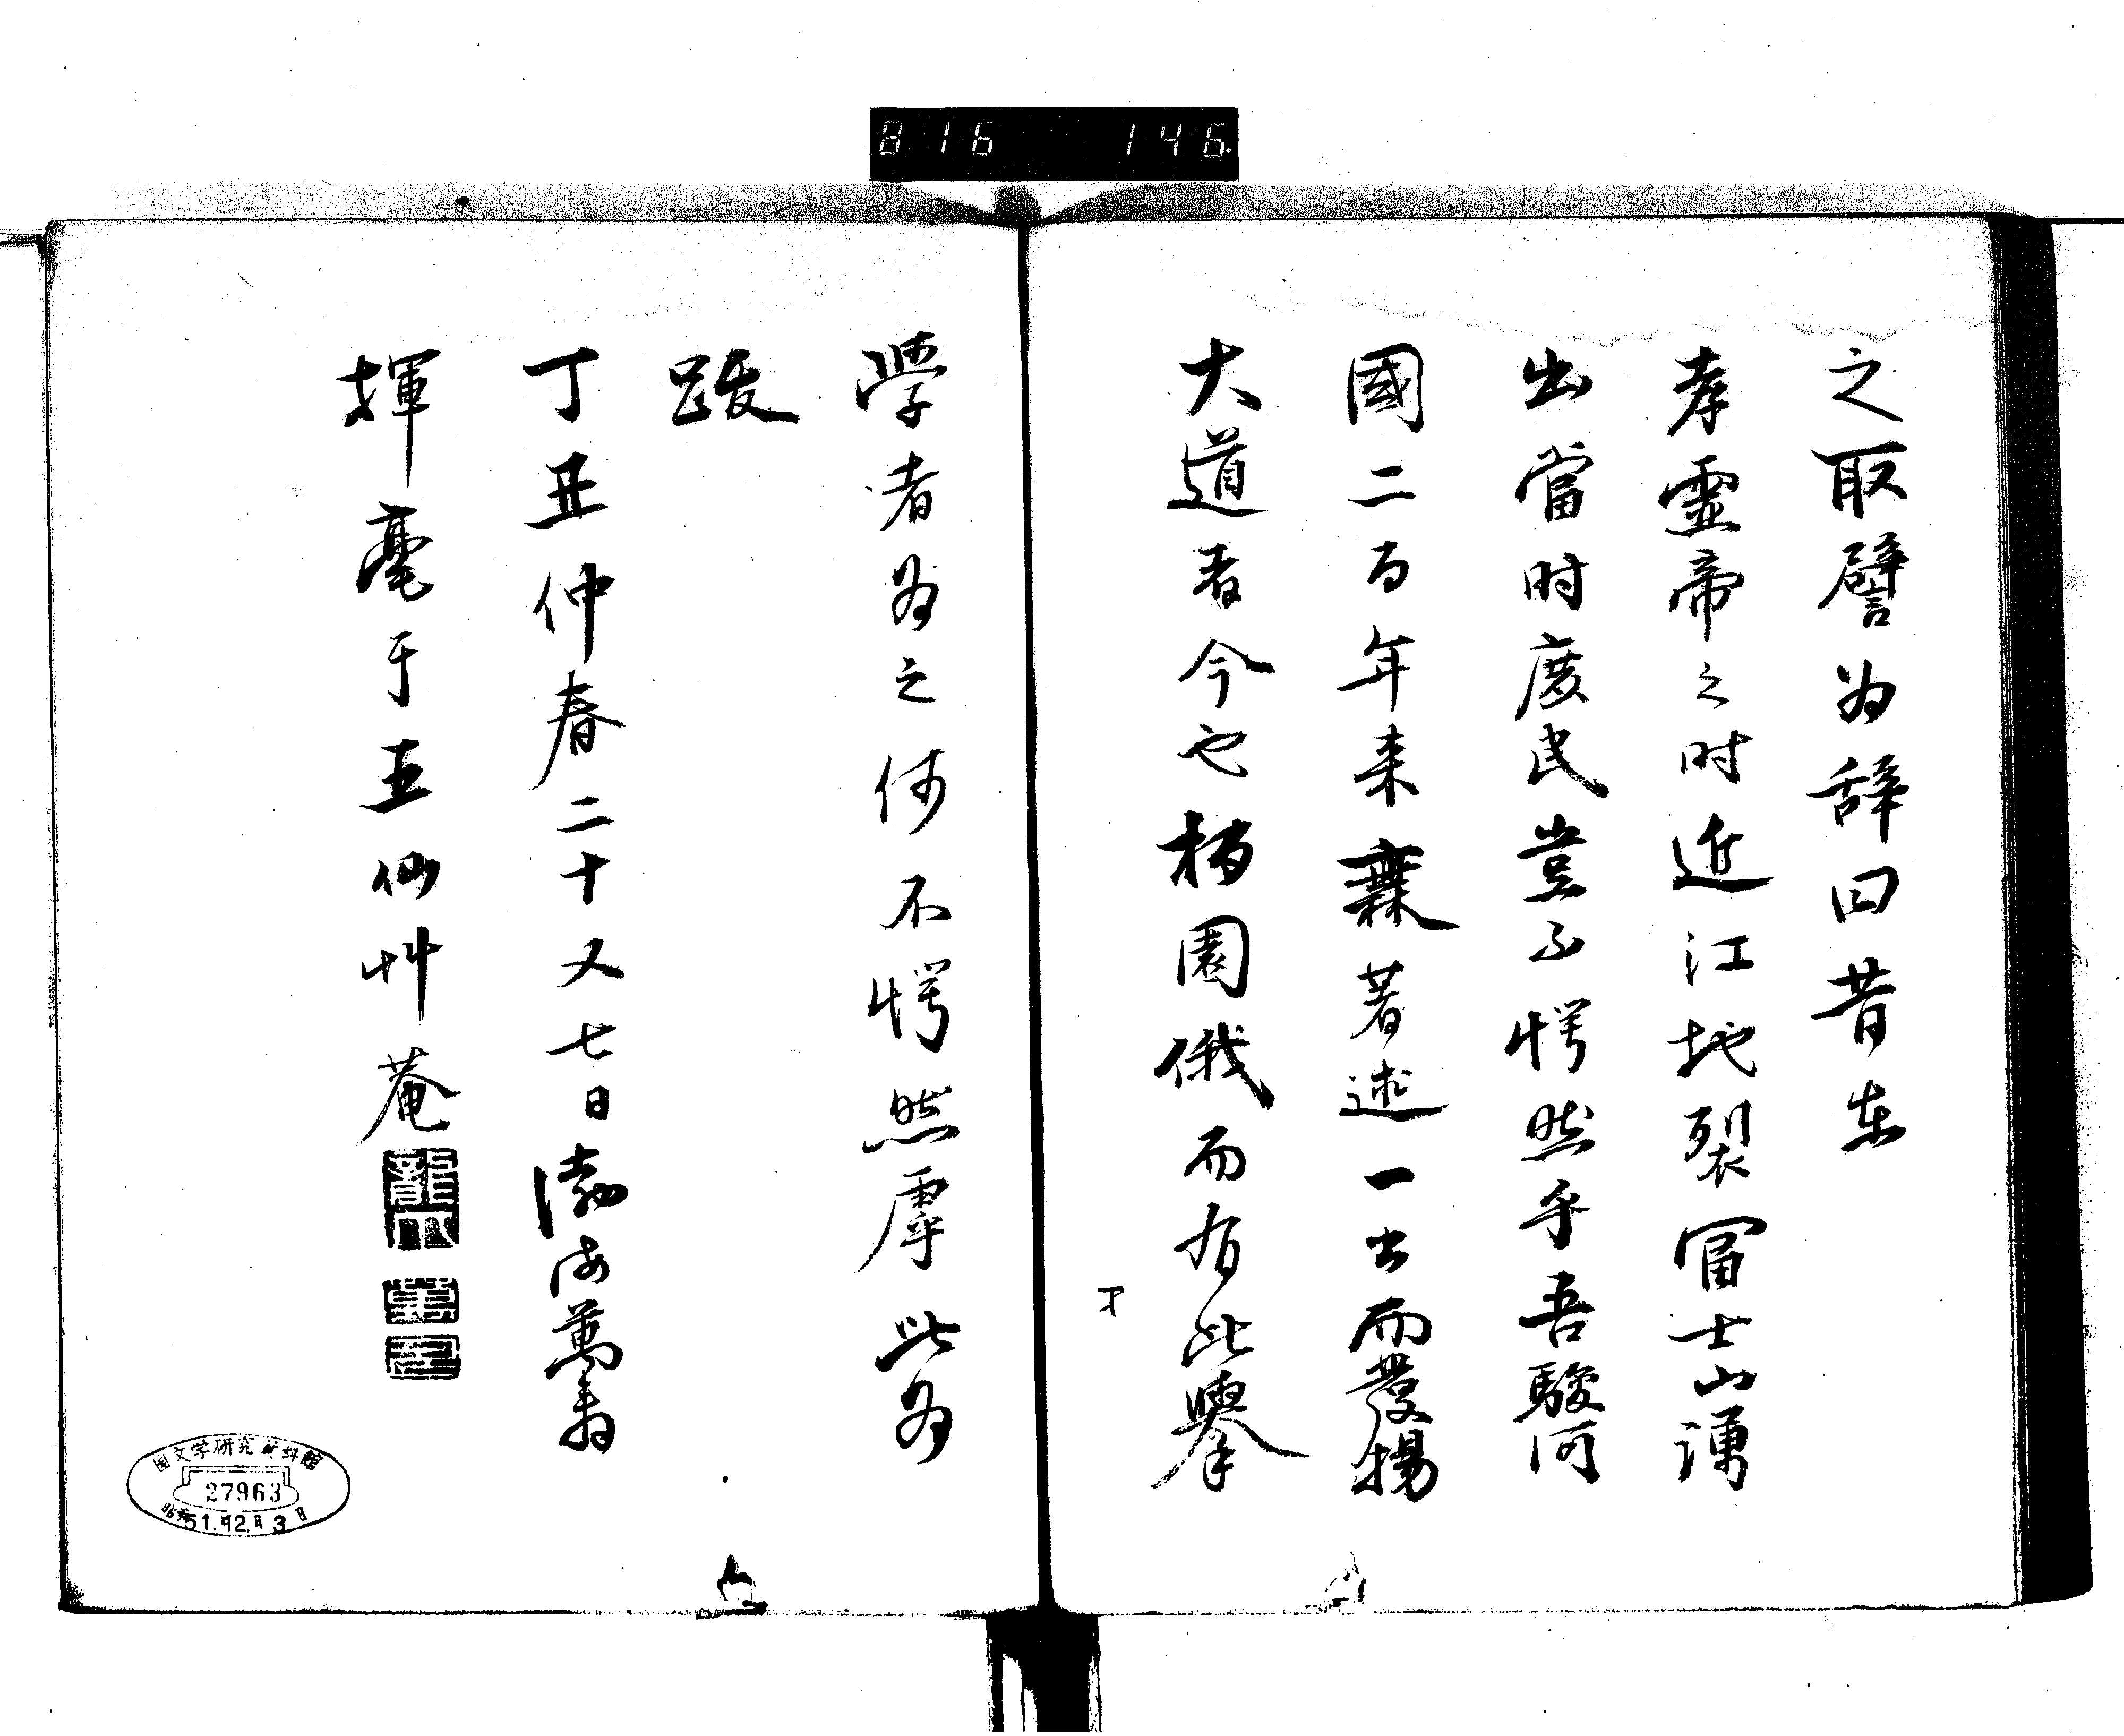 816 146
之取譬為辞曰昔在
孝靈帝之时近江地裂冨士山湧
出當时庶民豈不愕然乎吾駿河
國二百年来無著述一書而發揚
大道者今也栲園俄而有此舉
才
學者為之何不愕然虖此為
跋
丁丑仲春二十又七日渤海萬壽
揮毫于玉仙艸菴
國文学研究資料館
27963
昭和51.12月3日